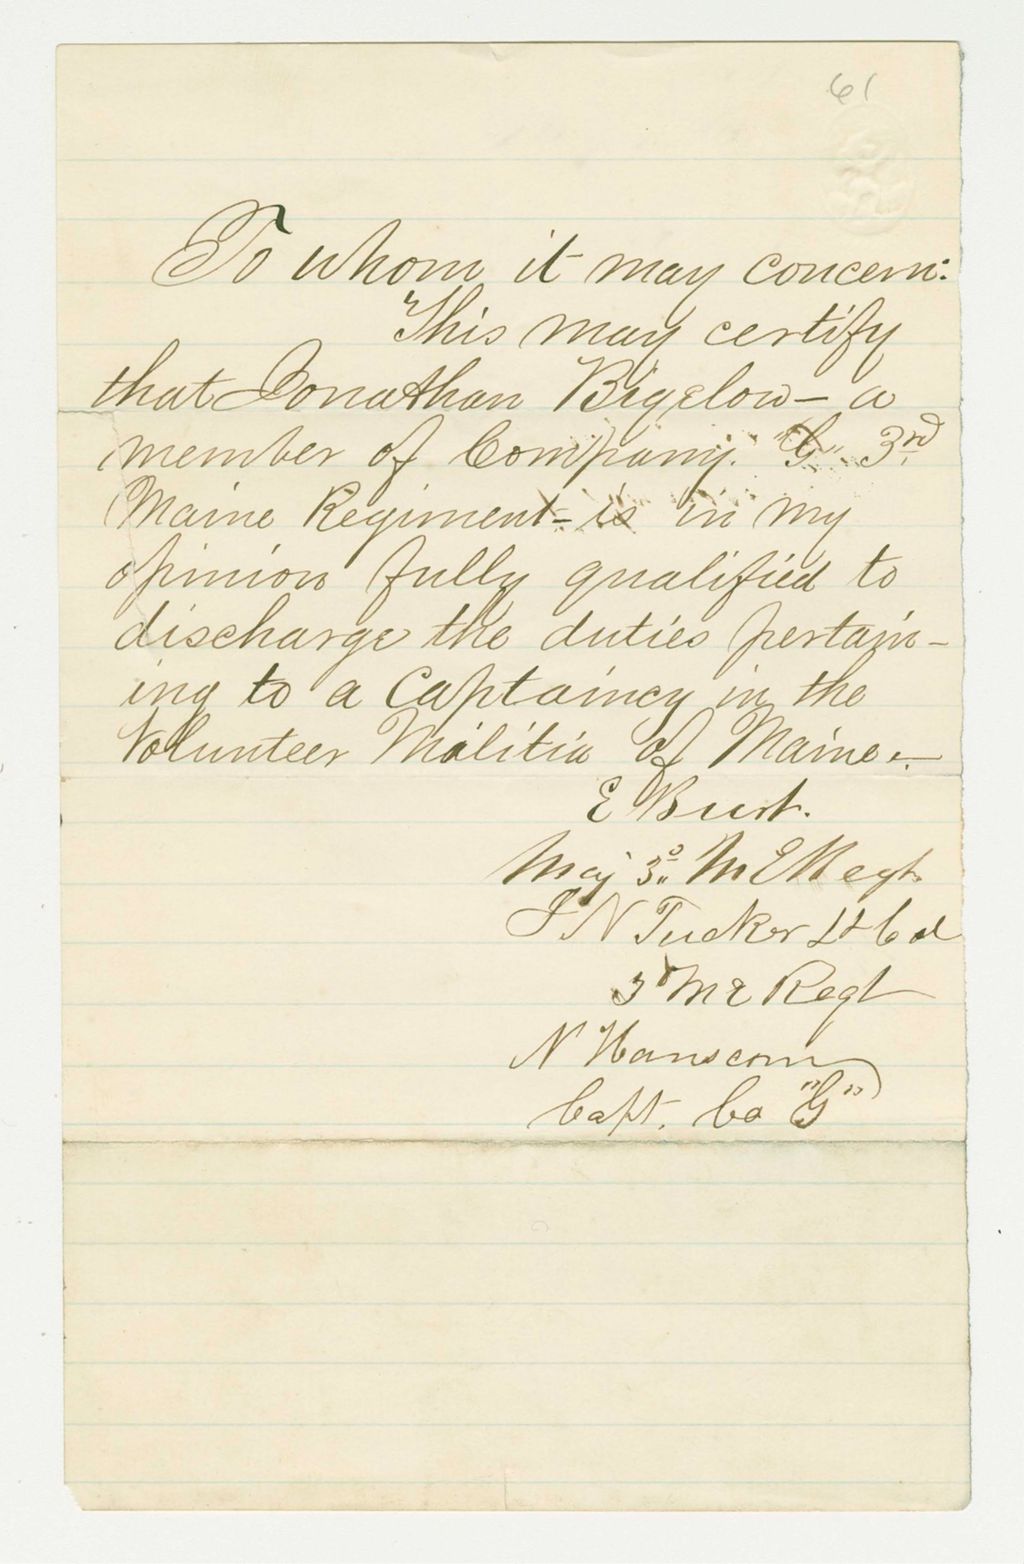 61
To whom it may concern:
This may certify
that Jonathan Bigelow - a
member of Company. "G" 3rd
Maine Regiment - is in my
opinion fully qualified to
discharge the duties pertain-
ing to a Captaincy in the
Volunteer Militia of Maine.-
E Burt.
Maj 3d. M E Regt.
I N Tucker Lt Col
3d Me Regt
N Hanscom
Capt. Co "G"